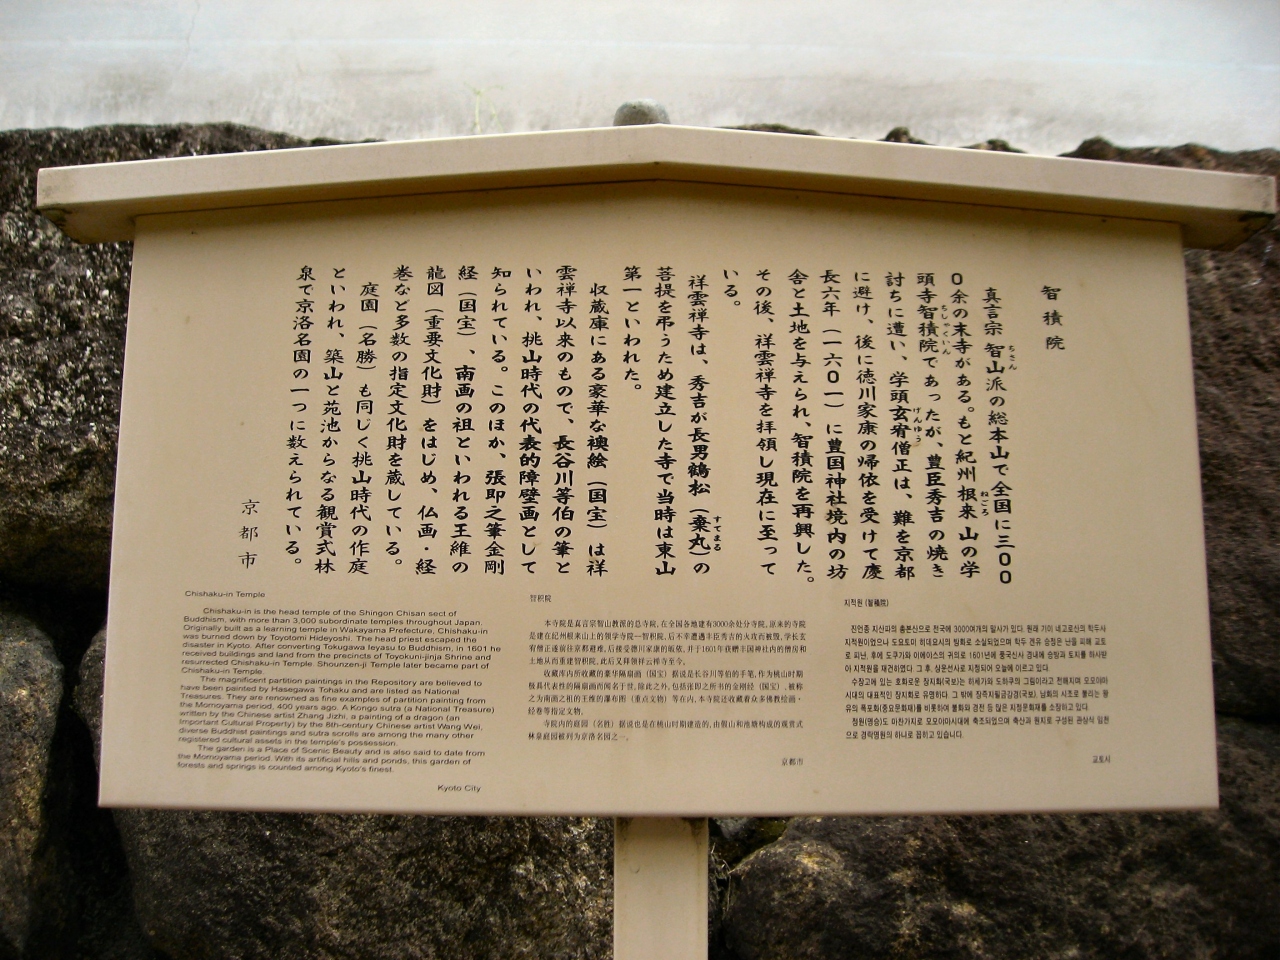 智積院
真言宗智山派の総本山で全国に三〇〇
〇余の末寺がある。もと紀州根来山の学
頭寺智積院であったが、豊臣秀吉の焼き
討ちに遭い、学頭玄宥僧正は、難を京都
に避け、後に徳川家康の帰依を受けて慶
長六年（一六〇一）に豊国神社境内の坊
舎と土地を与えられ、智積院を再興した。
その後、祥雲禅寺を拝領し現在に至って
いる。
祥雲禅寺は、秀吉が長男鶴松（棄丸）の
菩提を弔うため建立した寺で当時は東山
第一といわれた。
収蔵庫にある豪華な襖絵（国宝）は祥
雲禅寺以来のもので、長谷川等伯の筆と
いわれ、桃山時代の代表的障壁画として
知られている。このほか、張即之筆金剛
経（国宝）、南画の祖といわれる王維の
龍図（重要文化財）をはじめ、仏画・経
巻など多数の指定文化財を蔵している。
庭園（名勝）も同じく桃山時代の作庭
といわれ、築山と苑池からなる観賞式林
泉で京洛名園の一つに数えられている。
京都市
Chishaku-in Temple
Chishaku-in is the head temple of the Shingon Chisan sect of
Buddhism, with more than 3,000 subordinate temples throughout Japan.
Originally built as a learning temple in Wakayama Prefecture, Chishaku-in
was burned down by Toyotomi Hideyoshi. The head priest escaped the
disaster in Kyoto. After converting Tokugawa Ieyasu to Buddhism, in 1601 he
received buildings and land from the precincts of Toyokuni-jinja Shrine and
resurrected Chishaku-in Temple. Shounzen-ji Temple later became part of
Chishaku-in Temple.
The magnificent partition paintings in the Repository are believed to
have been painted by Hasegawa Tohaku and are listed as National
Treasures. They are renowned as fine examples of partition painting from
the Momoyama period, 400 years ago. A Kongo sutra (a National Treasure)
written by the Chinese artist Zhang Jizhi, a painting of a dragon (an
Important Cultural Property) by the 8th-century Chinese artist Wang Wei,
diverse Buddhist paintings and sutra scrolls are among the many other
registered cultural assets in the temple's possession.
The garden is a Place of Scenic Beauty and is also said to date from
the Momoyama period. With its artificial hills and ponds, this garden of
forests and springs is counted among Kyoto's finest.
Kyoto City
智积院
本寺院是真言宗智山教派的总寺院，在全国各地建有3000余处分寺院，原来的寺院
是建在纪州根来山上的领学寺院一智积院，后不幸遭遇丰臣秀吉的火攻而被毁，学长玄
宥僧正前往京都避难，后接受德川家康的皈依，并于1601年获赠丰国神社内的僧房和
土地从而重建智积院，此后又拜领祥云禅寺至今。
收藏库内所收藏的豪华隔扇画（国宝）据说是长谷川等伯的手笔，作为桃山时期
极具代表性的隔扇画而闻名于世，除此之外，包括张即之所书的金刚经（国宝），被称
之为南画之祖的王维的瀑布图（重点文物）等在内，本寺院还收藏着众多佛教绘画・
经卷等指定文物。
寺院内的庭园（名胜）据说也是在桃山时期建造的，由假山和池塘构成的观赏式
林泉庭园被列为京洛名园之一。
京都市
지적원 (智積院)
진언종 지산파의 총본산으로 전국에 3000여개의 말사가 있다. 원래 기이 네고로산의 학두사
지적원이었으나 도요토미 히데요시의 방화로 소실되었으며 학두 겐유 승정은 난을 피해 교토
로 피난, 후에 도쿠가와 이에야스의 귀의로 1601년에 풍국신사 경내에 승방과 토지를 하사받
아 지적원을 재건하였다. 그 후, 상운선사로 지정되어 오늘에 이르고 있다.
수장고에 있는 호화로운 장지화(국보)는 하세가와 도하쿠의 그림이라고 전해지며 모모야마
시대의 대표적인 장지화로 유명하다. 그 밖에 장즉지필금강경(국보), 남화의 시조로 불리는 왕
유의 폭포화(중요문화재)를 비롯하여 불화와 경전 등 많은 지정문화재를 소장하고 있다.
정원(명승)도 마찬가지로 모모야마시대에 축조되었으며 축산과 원지로 구성된 관상식 임천
으로 경락명원의 하나로 꼽히고 있습니다.
교토시